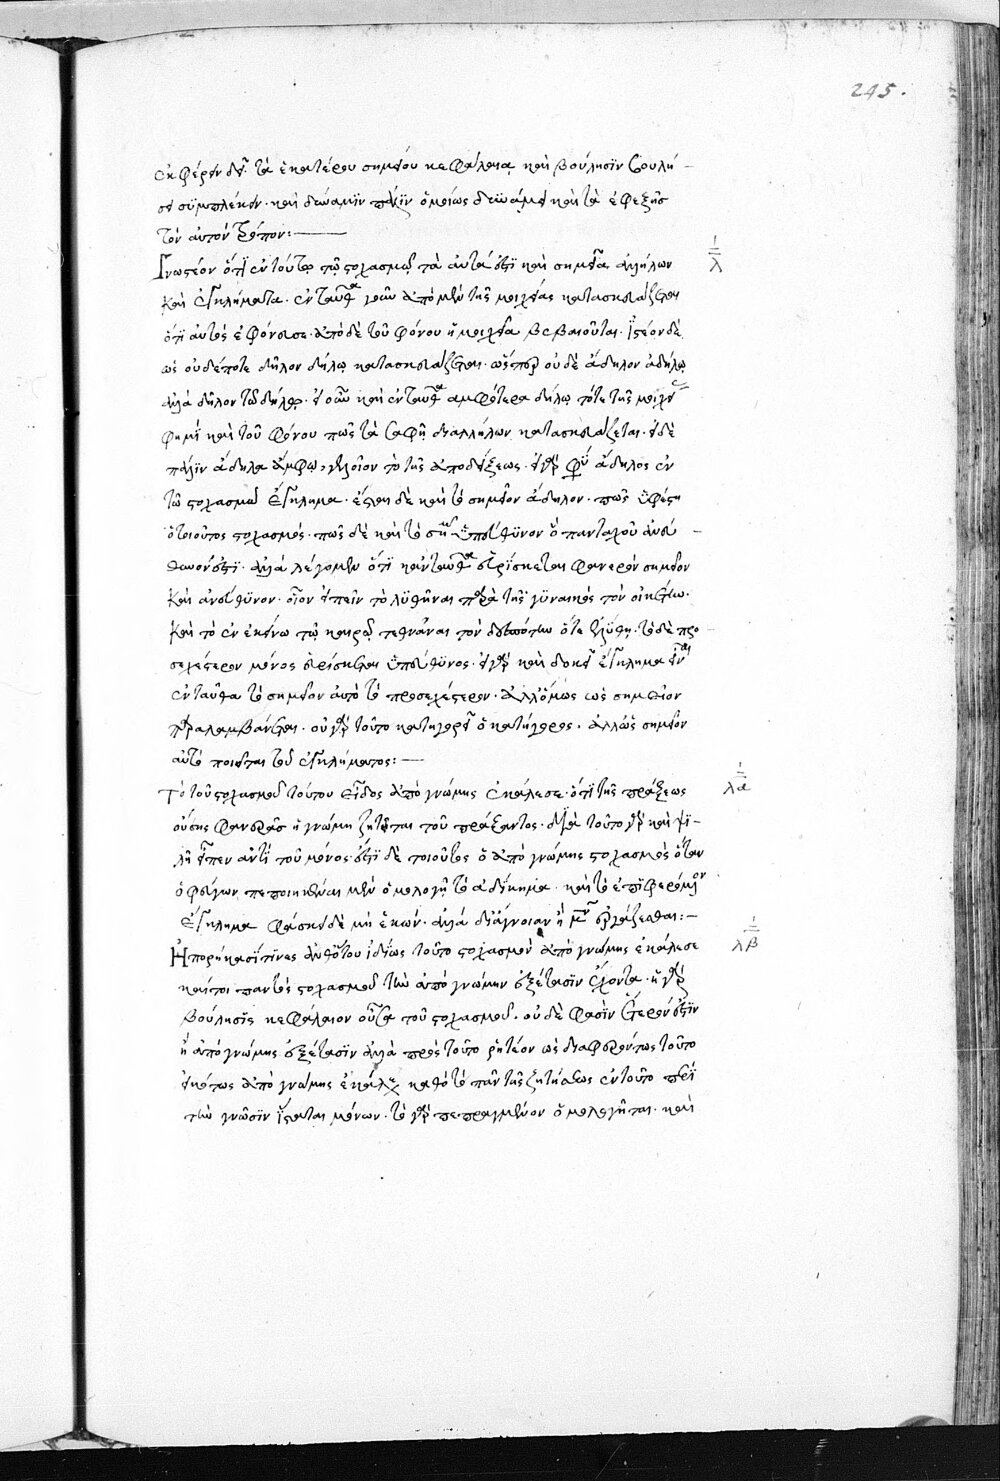 245.
ἐκφέρειν δεῖ τὰ ἑκατέρου σημείου κεφάλαια καὶ βούλησιν βουλή-
σει συμπλέκειν· καὶ δύναμιν πάλιν ὁμοίως δυνάμει καὶ τὰ ἐφεξῆς
τὸν αὐτὸν τρόπον:—
λ
Γνωστέον ὅτι ἐν τούτῳ τῷ στοχασμῷ τὰ αὐτά ἐστι καὶ σημεῖα ἀλλήλων
καὶ ἐγκλήματα· ἐνταῦθα γοῦν ἀπὸ μὲν τῆς μοιχείας κατασκευάζεται
ὅτι αὐτὸς ἐφόνευσε· ἀπὸ δὲ τοῦ φόνου ἡ μοιχεία βεβαιοῦται· ἰστέον δὲ
ὡς οὐδέποτε δῆλον δήλῳ κατασκευάζεται· ὥσπερ οὐδὲ ἄδηλον ἀδήλῳ
ἀλλὰ δῆλον τῷ δήλῳ· εἰ οὖν καὶ ἐνταῦθα ἀμφότερα δήλῳ τότε τῆς μοιχεί
φημὶ καὶ τοῦ φόνου πῶς τὰ σαφῆ δι' ἀλλήλων κατασκευάζεται· εἰ δὲ
πάλιν ἄδηλα ἄμφω, γελοῖον τὸ τῆς ἀποδείξεως· εἰ γὰρ ἄδηλος ἐν
τῷ στοχασμῷ ἔγκλημα· ἔσται δὲ καὶ τὸ σημεῖον ἄδηλον· πῶς
ὁ τοιοῦτος στοχασμός· πῶς δὲ καὶ τὸ ὑπεύθυνον ὃ πανταχοῦ ἀνεύ-
θυνόν ἐστι· ἀλλὰ λέγομεν ὅτι κἀνταῦθα εὑρίσκεται φανερὸν σημεῖον
καὶ ἀνεύθυνον· οἷον εἰπεῖν τὸ λυθῆναι παρὰ τῆς γυναικὸς τὸν οἰκέτην·
καὶ τὸ ἐν ἐκείνῳ τῷ καιρῷ τεθνάναι τὸν δεσπότην ὅτε ἐλύθη· τὸ δὲ προ-
σεχέστερον μόνος εὑρίσκεται ὑπεύθυνος· εἰ γὰρ καὶ δοκεῖ ἔγκλημα εἶναι
ἐνταῦθα τὸ σημεῖον ἀπὸ τὸ προσεχέστερον· ἀλλ' ὅμως ὡς σημεῖον
παραλαμβάνεται· οὐ γὰρ τοῦτο κατηγορεῖ ὁ κατήγορος· ἀλλ' ὡς σημεῖον
αὐτὸ ποιεῖται τοῦ ἐγκλήματος:—
λα
Τὸ τοῦ στοχασμοῦ τούτου εἶδος ἀπὸ γνώμης ἐκάλεσε· ὅτι τῆς πράξεως
οὔσης φανερᾶς ἡ γνώμη ζητεῖται τοῦ πράξαντος· διὰ τοῦτο γὰρ καὶ ψι-
λὴ εἶπεν ἀντὶ τοῦ μόνος· ἔστι δὲ τοιοῦτος ὁ ἀπὸ γνώμης στοχασμὸς ὅταν
ὁ φεύγων πεποιηκέναι μὲν ὁμολογῇ τὸ ἀδίκημα· καὶ τὸ ἐπιφερόμενον
ἔγκλημα φάσκει δὲ μὴ ἑκών· ἀλλὰ δι' ἄγνοιαν ἢ ἐργάζεσθαι:—
λβ
Ἠπορήκασί τινες ἀνθ' ὅτου ἰδίως τοῦτο στοχασμὸν ἀπὸ γνώμης ἐκάλεσε
καίτοι παντὸς στοχασμοῦ τὴν ἀπὸ γνώμην ἐξέτασιν ἔχοντα· ἡ γὰρ
βούλησις κεφάλαιον οὖσα τοῦ στοχασμοῦ· οὐδὲ φασὶν ἕτερόν ἐστιν
ἢ ἀπὸ γνώμης ἐξέτασιν ἀλλὰ πρὸς τοῦτο ῥητέον ὡς διαφερόντως τοῦτο
εἰκότως ἀπὸ γνώμης ἐκάλεσε καθὸ τὸ πᾶν τῆς ζητήσεως ἐν τούτῳ περὶ
τὴν γνῶσιν ἵσταται μόνων· τὸ γὰρ πεπραγμένον ὁμολογεῖται· καὶ